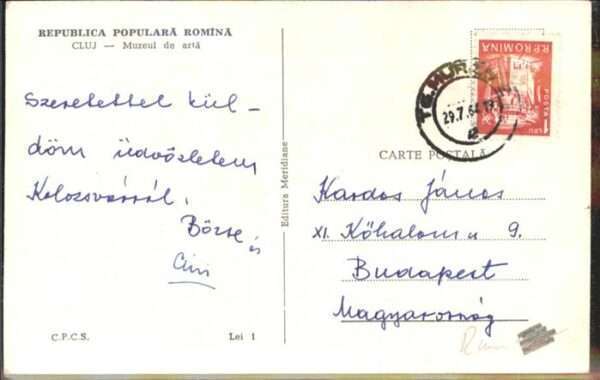 REPUBLICA POPULARĂ ROMÎNĂ
CLUJ — Muzeul de artă
Szeretettel kül-
döm üdvözletem
Kolozsvárról.
Bözse és
C.P.C.S.
Lei 1
Editura Meridiane
R.P.ROMINA
POSTA
TG. MUREȘ
29.7.64.19
CARTE POȘTALĂ
Kardos János
XI. Kőhalom u 9.
Budapest
Magyarország